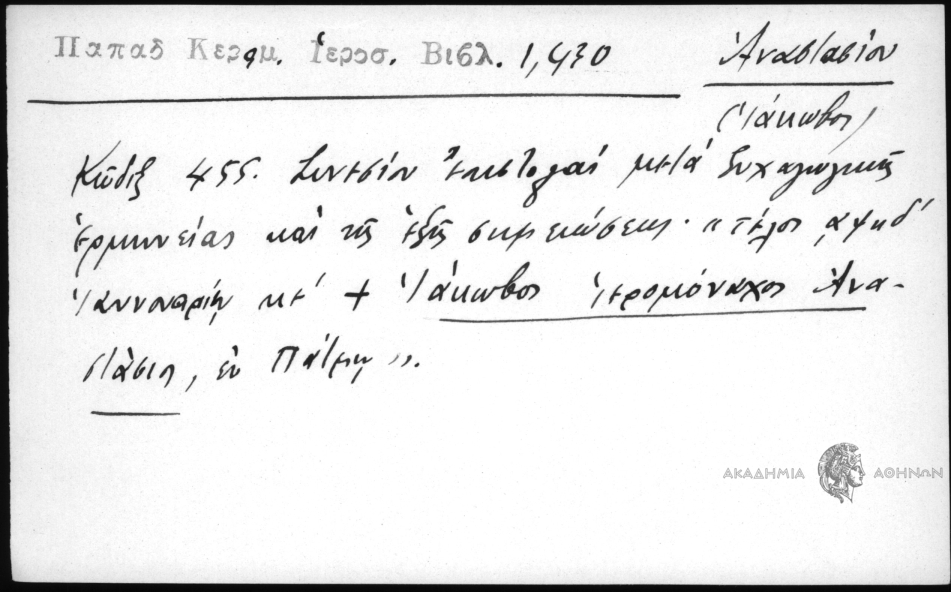 Παπαδ Κεραμ. Ἱεροσ. Βιβλ. 1,430
Ἀναστασίου
(Ἰάκωβος)
Κῶδιξ 455. Συνεσίου ἐπιστολαί μετά ψυχαγωγικῆς
ἑρμηνείας καί τῆς ἑξῆς σημειώσεως· «τέλος αψηδ΄
Ἰαννουαρίῳ κε΄ + Ἰάκωβος ἱερομόναχος Ἀνα-
στάσιος, ἐν Πάτμῳ».
ΑΚΑΔΗΜΙΑ ΑΘΗΝΩΝ